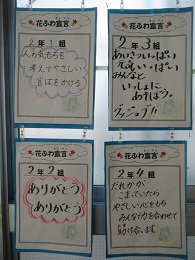 花ふわ宣言
2年1組
人の気もちを
考えてやさしい
言ばをかける
花ふわ宣言
2年3組
あいさついっぱい
元気いっぱい
みんなと
いっしょに
あそぼう。
グッジョブ!!
花ふわ宣言
2年2組
ありがとう
ありがとう
花ふわ宣言
2年4組
だれかが
こまっていたら
やさしい心をもち
みんなで力を合わせて
助け合います。